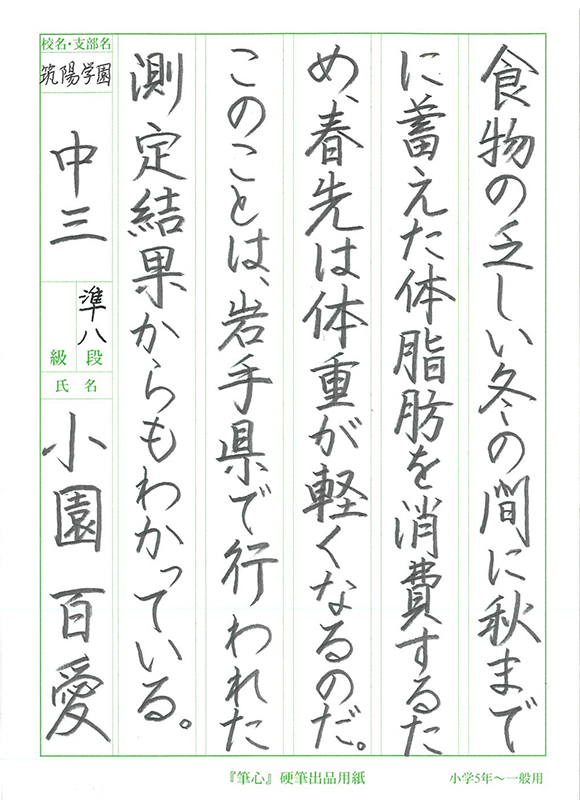 食物の乏しい冬の間に秋まで
に蓄えた体脂肪を消費するた
め、春先は体重が軽くなるのだ。
このことは、岩手県で行われた
測定結果からもわかっている。
校名・支部名
筑陽学園
中三
準八
段
級
氏名
小園 百愛
『筆心』硬筆出品用紙
小学5年～一般用